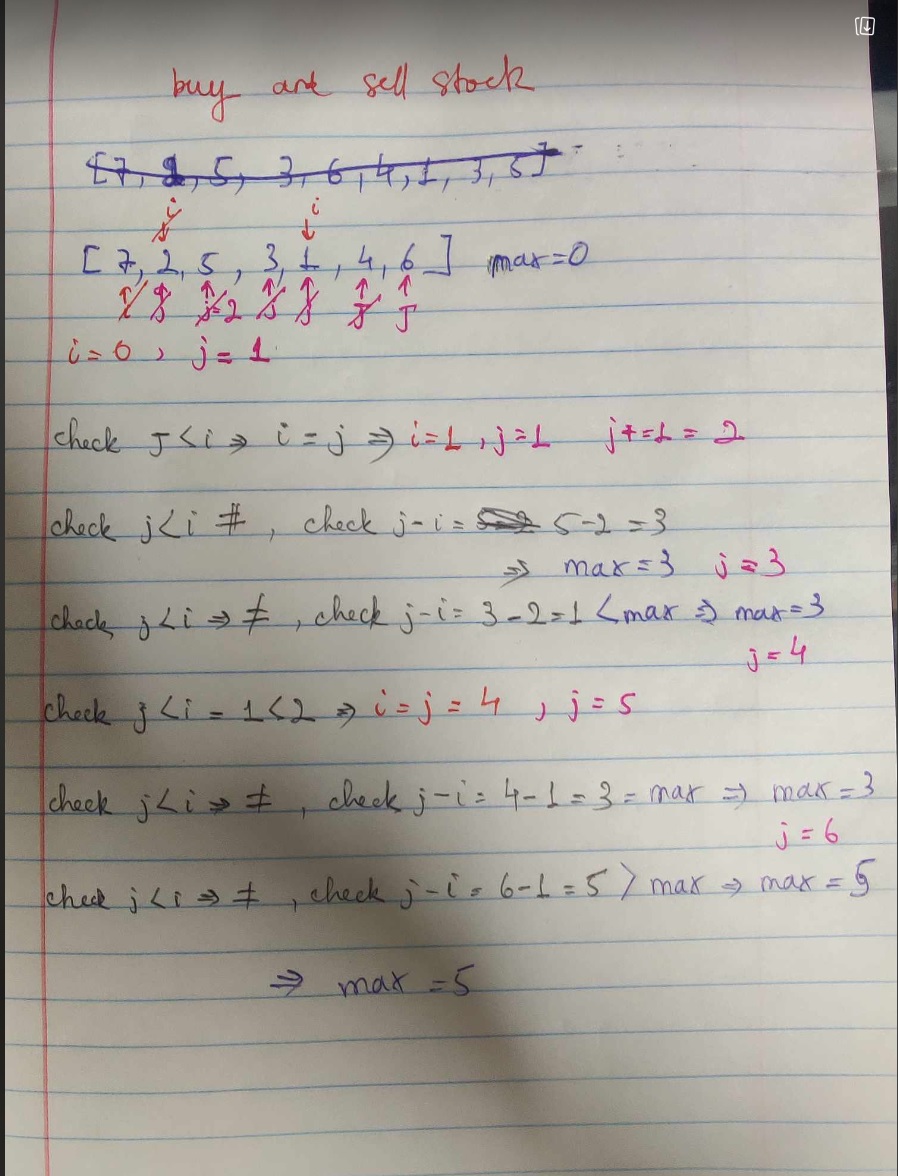 buy and sell stock
[7, 2, 5, 3, 6, 4, 1, 3, 5]
i i
[7, 2, 5, 3, 1, 4, 6] max=0
i j j=2 j j j J
i=0, j=1
check J<i ⇒ i=j ⇒ i=1, j=1 j+=1=2
check j<i ≠, check j-i= 5-2=3
⇒ max=3 j=3
check j<i ⇒ ≠, check j-i= 3-2=1 <max ⇒ max=3
j=4
check j<i = 1<2 ⇒ i=j=4, j=5
check j<i ⇒ ≠, check j-i= 4-1=3=max ⇒ max=3
j=6
check j<i ⇒ ≠, check j-i= 6-1=5 > max ⇒ max=5
⇒ max=5